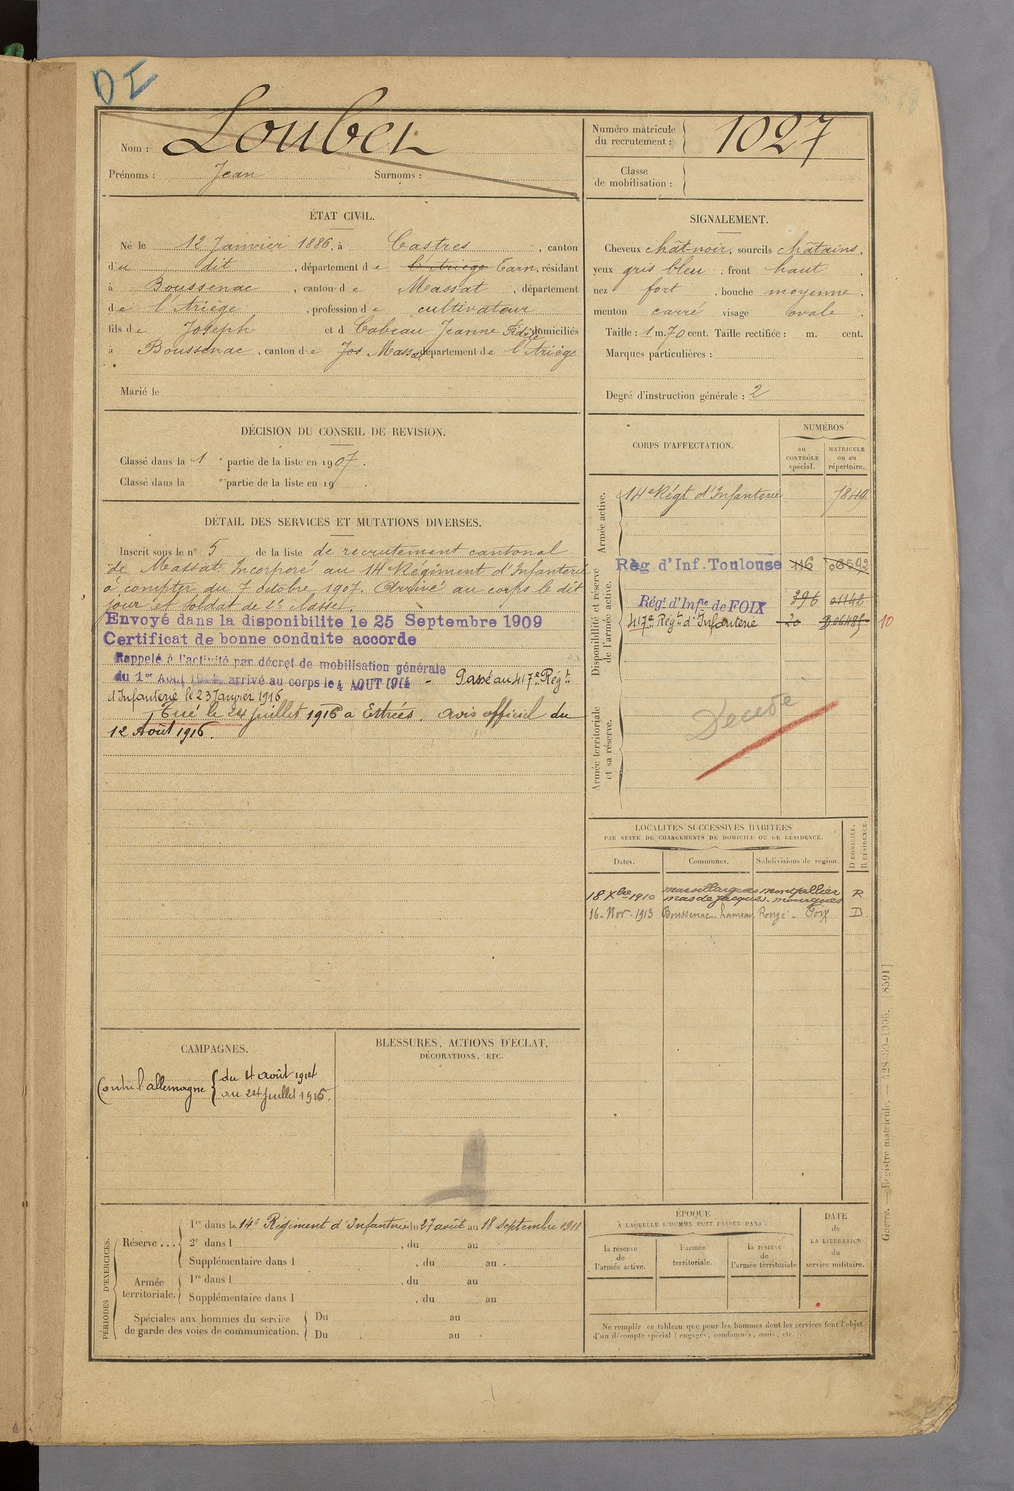 DI
Nom : Loubet
Prénoms : Jean Surnoms :
Numéro matricule du recrutement : 1027
Classe de mobilisation :
ÉTAT CIVIL.
Né le 12 Janvier 1886, à Castres, canton
d'u dit, département de l'Ariège Tarn, résidant
à Boussenac, canton de Massat, département
de l'Ariège, profession de cultivateur
fils de Joseph et d Cabeau Jeanne Fidèle domiciliés
à Boussenac, canton de Massat département de l'Ariège
Marié le
SIGNALEMENT.
Cheveux chât-noir, sourcils châtains,
yeux gris bleu, front haut,
nez fort, bouche moyenne,
menton carré visage ovale.
Taille : 1 m. 70 cent. Taille rectifiée : m. cent.
Marques particulières :
Degré d'instruction générale : 2
DÉCISION DU CONSEIL DE REVISION.
Classé dans la 1e partie de la liste en 1907.
Classé dans la e partie de la liste en 19
DÉTAIL DES SERVICES ET MUTATIONS DIVERSES.
Inscrit sous le n° 5 de la liste de recrutement cantonal
de Massat. Incorporé au 14e Régiment d'Infanterie
à compter du 7 octobre 1907. Arrivé au corps le dit
jour et soldat de 2e classe.
Envoyé dans la disponibilite le 25 Septembre 1909
Certificat de bonne conduite accorde
Rappelé à l'activité par décret de mobilisation générale
du 1er Août 1914, arrivé au corps le 4 AOUT 1914 - Passé au 417e Régt
d'Infanterie le 23 Janvier 1916
Tué le 24 Juillet 1916 à Estrées. avis officiel du
12 Août 1916.
CORPS D'AFFECTATION.
NUMÉROS
au CONTRÔLE spécial.
MATRICULE ou au répertoire.
Armée active.
14e Régt d'Infanterie
Disponibilité et réserve de l'armée active.
Règ d'Inf. Toulouse 116
Régt d'Infie de FOIX 396
417e Régt d'Infanterie 20 10
Armée territoriale et sa réserve.
Décédé
LOCALITÉS SUCCESSIVES HABITÉES
PAR SUITE DE CHANGEMENTS DE DOMICILE OU DE RÉSIDENCE.
Dates. Communes. Subdivisions de région. D DOMICILE. R RÉSIDENCE.
18 Xbre 1910 Marsillargues Montpellier R
16 - Nov - 1913 Boussenac hameau Rouze - Foix D
CAMPAGNES.
Contre l'allemagne { du 4 août 1914
au 24 juillet 1916.
BLESSURES, ACTIONS D'ÉCLAT,
DÉCORATIONS, ETC.
PÉRIODES D'EXERCICES.
Réserve....
1re dans le 14e Régiment d'Infanterie du 27 août au 18 septembre 1911
2e dans l , du au
Supplémentaire dans l , du au
Armée territoriale.
1re dans l , du au
Supplémentaire dans l , du au
Spéciales aux hommes du service de garde des voies de communication.
Du au
Du au
ÉPOQUE
À LAQUELLE L'HOMME DOIT PASSER DANS :
la réserve de l'armée active.
l'armée territoriale.
la réserve de l'armée territoriale
DATE de LA LIBÉRATION du service militaire.
Ne remplir ce tableau que pour les hommes dont les services font l'objet
d'un décompte spécial (engagés, condamnés, omis, etc.
Guerre. — Registre matricule.